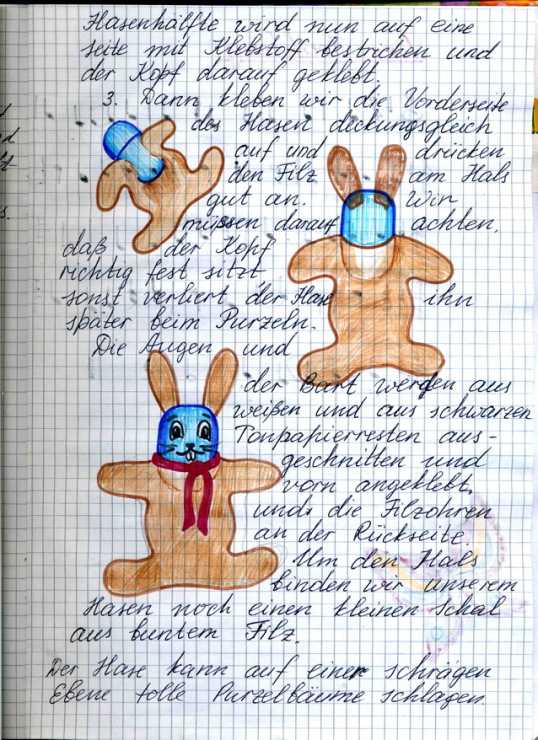 Hasenhälfte wird nun auf eine
Seite mit Klebstoff bestrichen und
der Kopf darauf geklebt.
3. Dann kleben wir die Vorderseite
des Hasen deckungsgleich
auf und drücken
den Filz am Hals
gut an. Wir
müssen darauf achten,
daß der Kopf
richtig fest sitzt,
sonst verliert der Hase ihn
später beim Purzeln.
Die Augen und
der Bart werden aus
weißen und aus schwarzen
Tonpapierresten aus-
geschnitten und
vorn angeklebt,
und die Filzohren
an der Rückseite.
Um den Hals
binden wir unserem
Hasen noch einen kleinen Schal
aus buntem Filz.
Der Hase kann auf einer schrägen
Ebene tolle Purzelbäume schlagen.